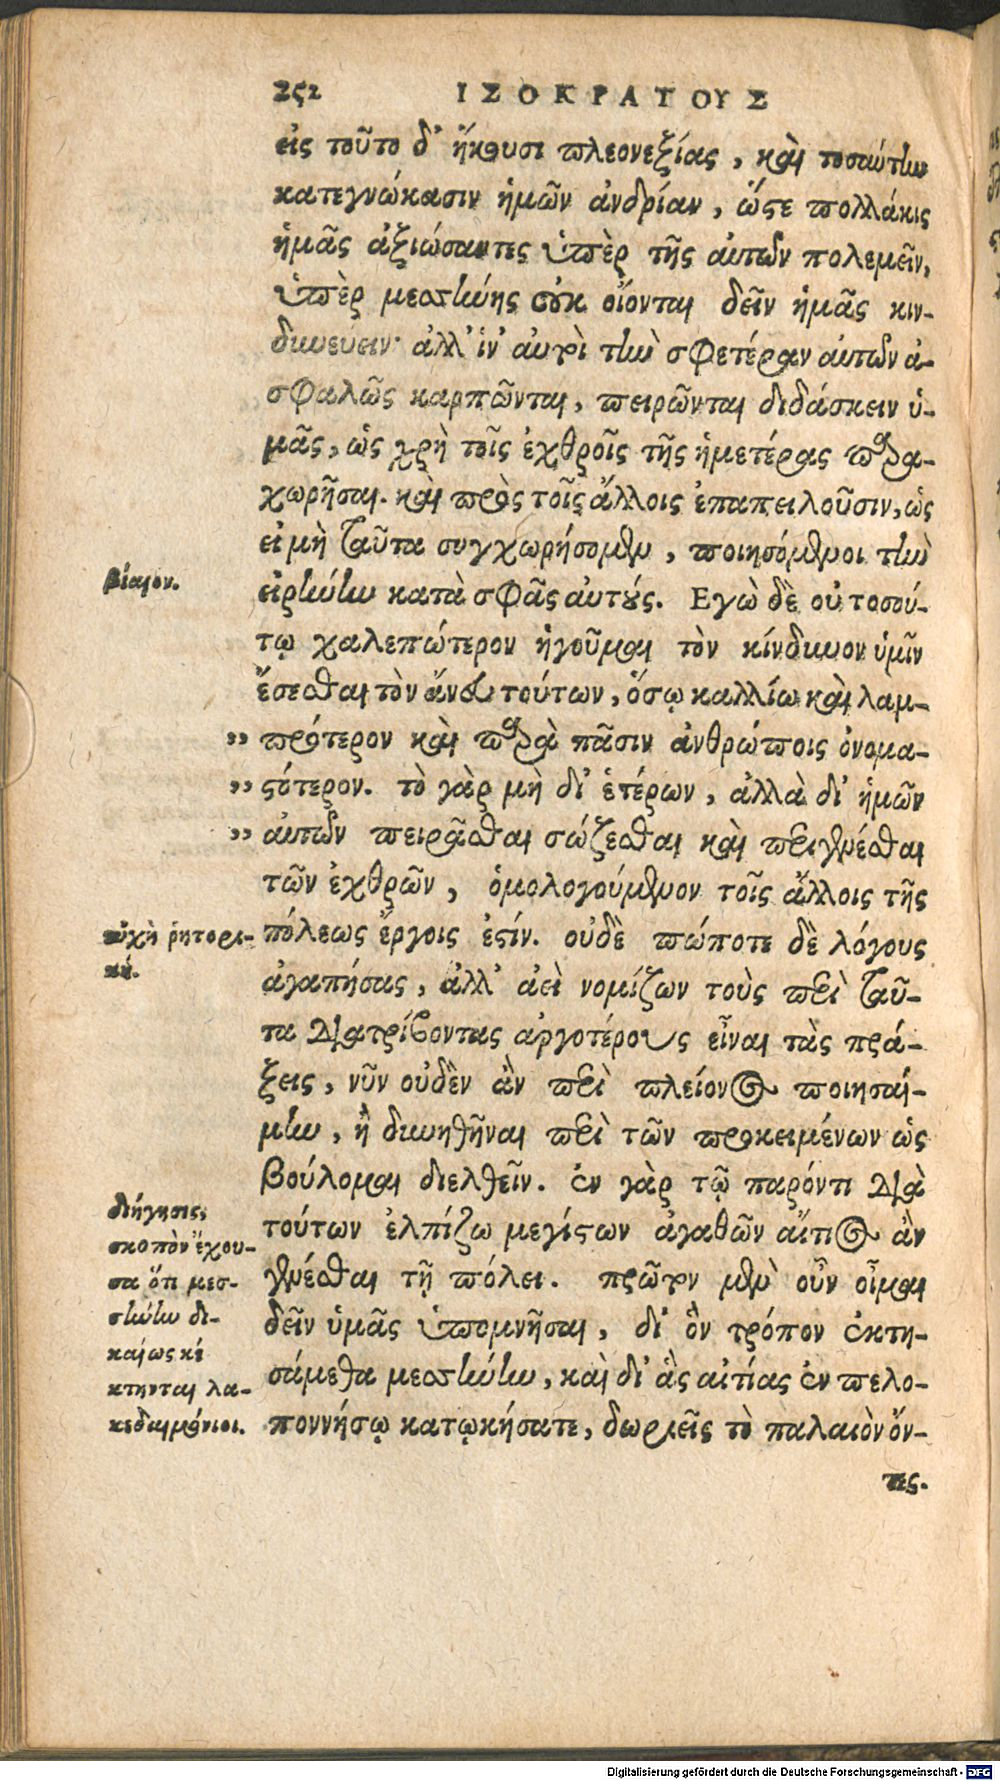 252 ΙΣΟΚΡΑΤΟΥΣ
εἰς τοῦτο δ' ἥκουσι πλεονεξίας, καὶ τοσαύτην
κατεγνώκασιν ἡμῶν ἀνδρίαν, ὥστε πολλάκις
ἡμᾶς ἀξιώσαντες ὑπὲρ τῆς αὐτῶν πολεμεῖν,
ὑπὲρ μεσσήνης οὐκ οἴονται δεῖν ἡμᾶς κιν-
δυνεύειν· ἀλλ' ἵν' αὐτοὶ τὴν σφετέραν αὐτῶν ἀ-
σφαλῶς καρπῶνται, πειρῶνται διδάσκειν ὑ-
μᾶς, ὡς χρὴ τοῖς ἐχθροῖς τῆς ἡμετέρας παρα-
χωρῆσαι. καὶ πρὸς τοῖς ἄλλοις ἐπαπειλοῦσιν, ὡς
εἰ μὴ ταῦτα συγχωρήσομεν, ποιησόμενοι τὴν
βίαιον.
εἰρήνην κατὰ σφᾶς αὐτούς. Εγὼ δὲ οὐ τοσού-
τῳ χαλεπώτερον ἡγοῦμαι τὸν κίνδυνον ὑμῖν
ἔσεσθαι τὸν ἄνευ τούτων, ὅσῳ καλλίω καὶ λαμ-
„ πρότερον καὶ παρὰ πᾶσιν ἀνθρώποις ὀνομα-
„ στότερον. τὸ γὰρ μὴ δι' ἑτέρων, ἀλλὰ δι' ἡμῶν
„ αὐτῶν πειρᾶσθαι σώζεσθαι καὶ περιγενέσθαι
τῶν ἐχθρῶν, ὁμολογούμενον τοῖς ἄλλοις τῆς
εὐχὴ ῥητορι-
κή.
πόλεως ἔργοις ἐστίν. οὐδὲ πώποτε δὲ λόγους
ἀγαπήσας, ἀλλ' ἀεὶ νομίζων τοὺς περὶ ταῦ-
τα διατρίβοντας ἀργοτέρους εἶναι τὰς πρά-
ξεις, νῦν οὐδὲν ἂν περὶ πλείονος ποιησαί-
μην, ἢ δυνηθῆναι περὶ τῶν προκειμένων ὡς
βούλομαι διελθεῖν. ἐν γὰρ τῷ παρόντι διὰ
διήγησις,
σκοπὸν ἔχου-
σα ὅτι μεσ-
σήνην δι-
καίως κέ
κτηνται λα-
κεδαιμόνιοι.
τούτων ἐλπίζω μεγίστων ἀγαθῶν αἴτιος ἂν
γενέσθαι τῇ πόλει. πρῶτον μὲν οὖν οἶμαι
δεῖν ὑμᾶς ὑπομνῆσαι, δι' ὃν τρόπον ἐκτη-
σάμεθα μεσσήνην, καὶ δι' ἃς αἰτίας ἐν πελο-
ποννήσῳ κατῳκήσατε, δωριεῖς τὸ παλαιὸν ὄν-
τες.
Digitalisierung gefördert durch die Deutsche Forschungsgemeinschaft - DFG